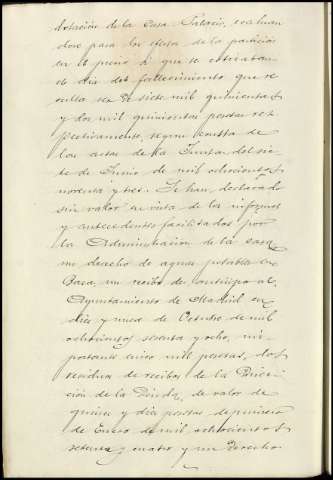 dotación de la Casa Palacio, evaluan
dose para los efectos de la partición
en el precio á que se cotizaban
el dia del fallecimiento que re
sulta ser de siete mil quinientas
y dos mil quinientas pesetas res
pectivamente, segun consta de
las actas de la Junta del sie
te de Junio de mil ochocientos
noventa y tres. Se han declarado
sin valor en vista de los informes
y antecedentes facilitados por
la Administracion de la casa
un derecho de aguas potables en
Baza, un recibo de anticipo al
Ayuntamiento de Madrid en
diez y nueve de Octubre de mil
ochocientos sesenta y ocho, im
portante cinco mil pesetas, dos
residuos de recibos de la Direc
ción de la Deuda, de valor de
quince y diez pesetas de primero
de Enero de mil ochocientos
setenta y cuatro y un derecho